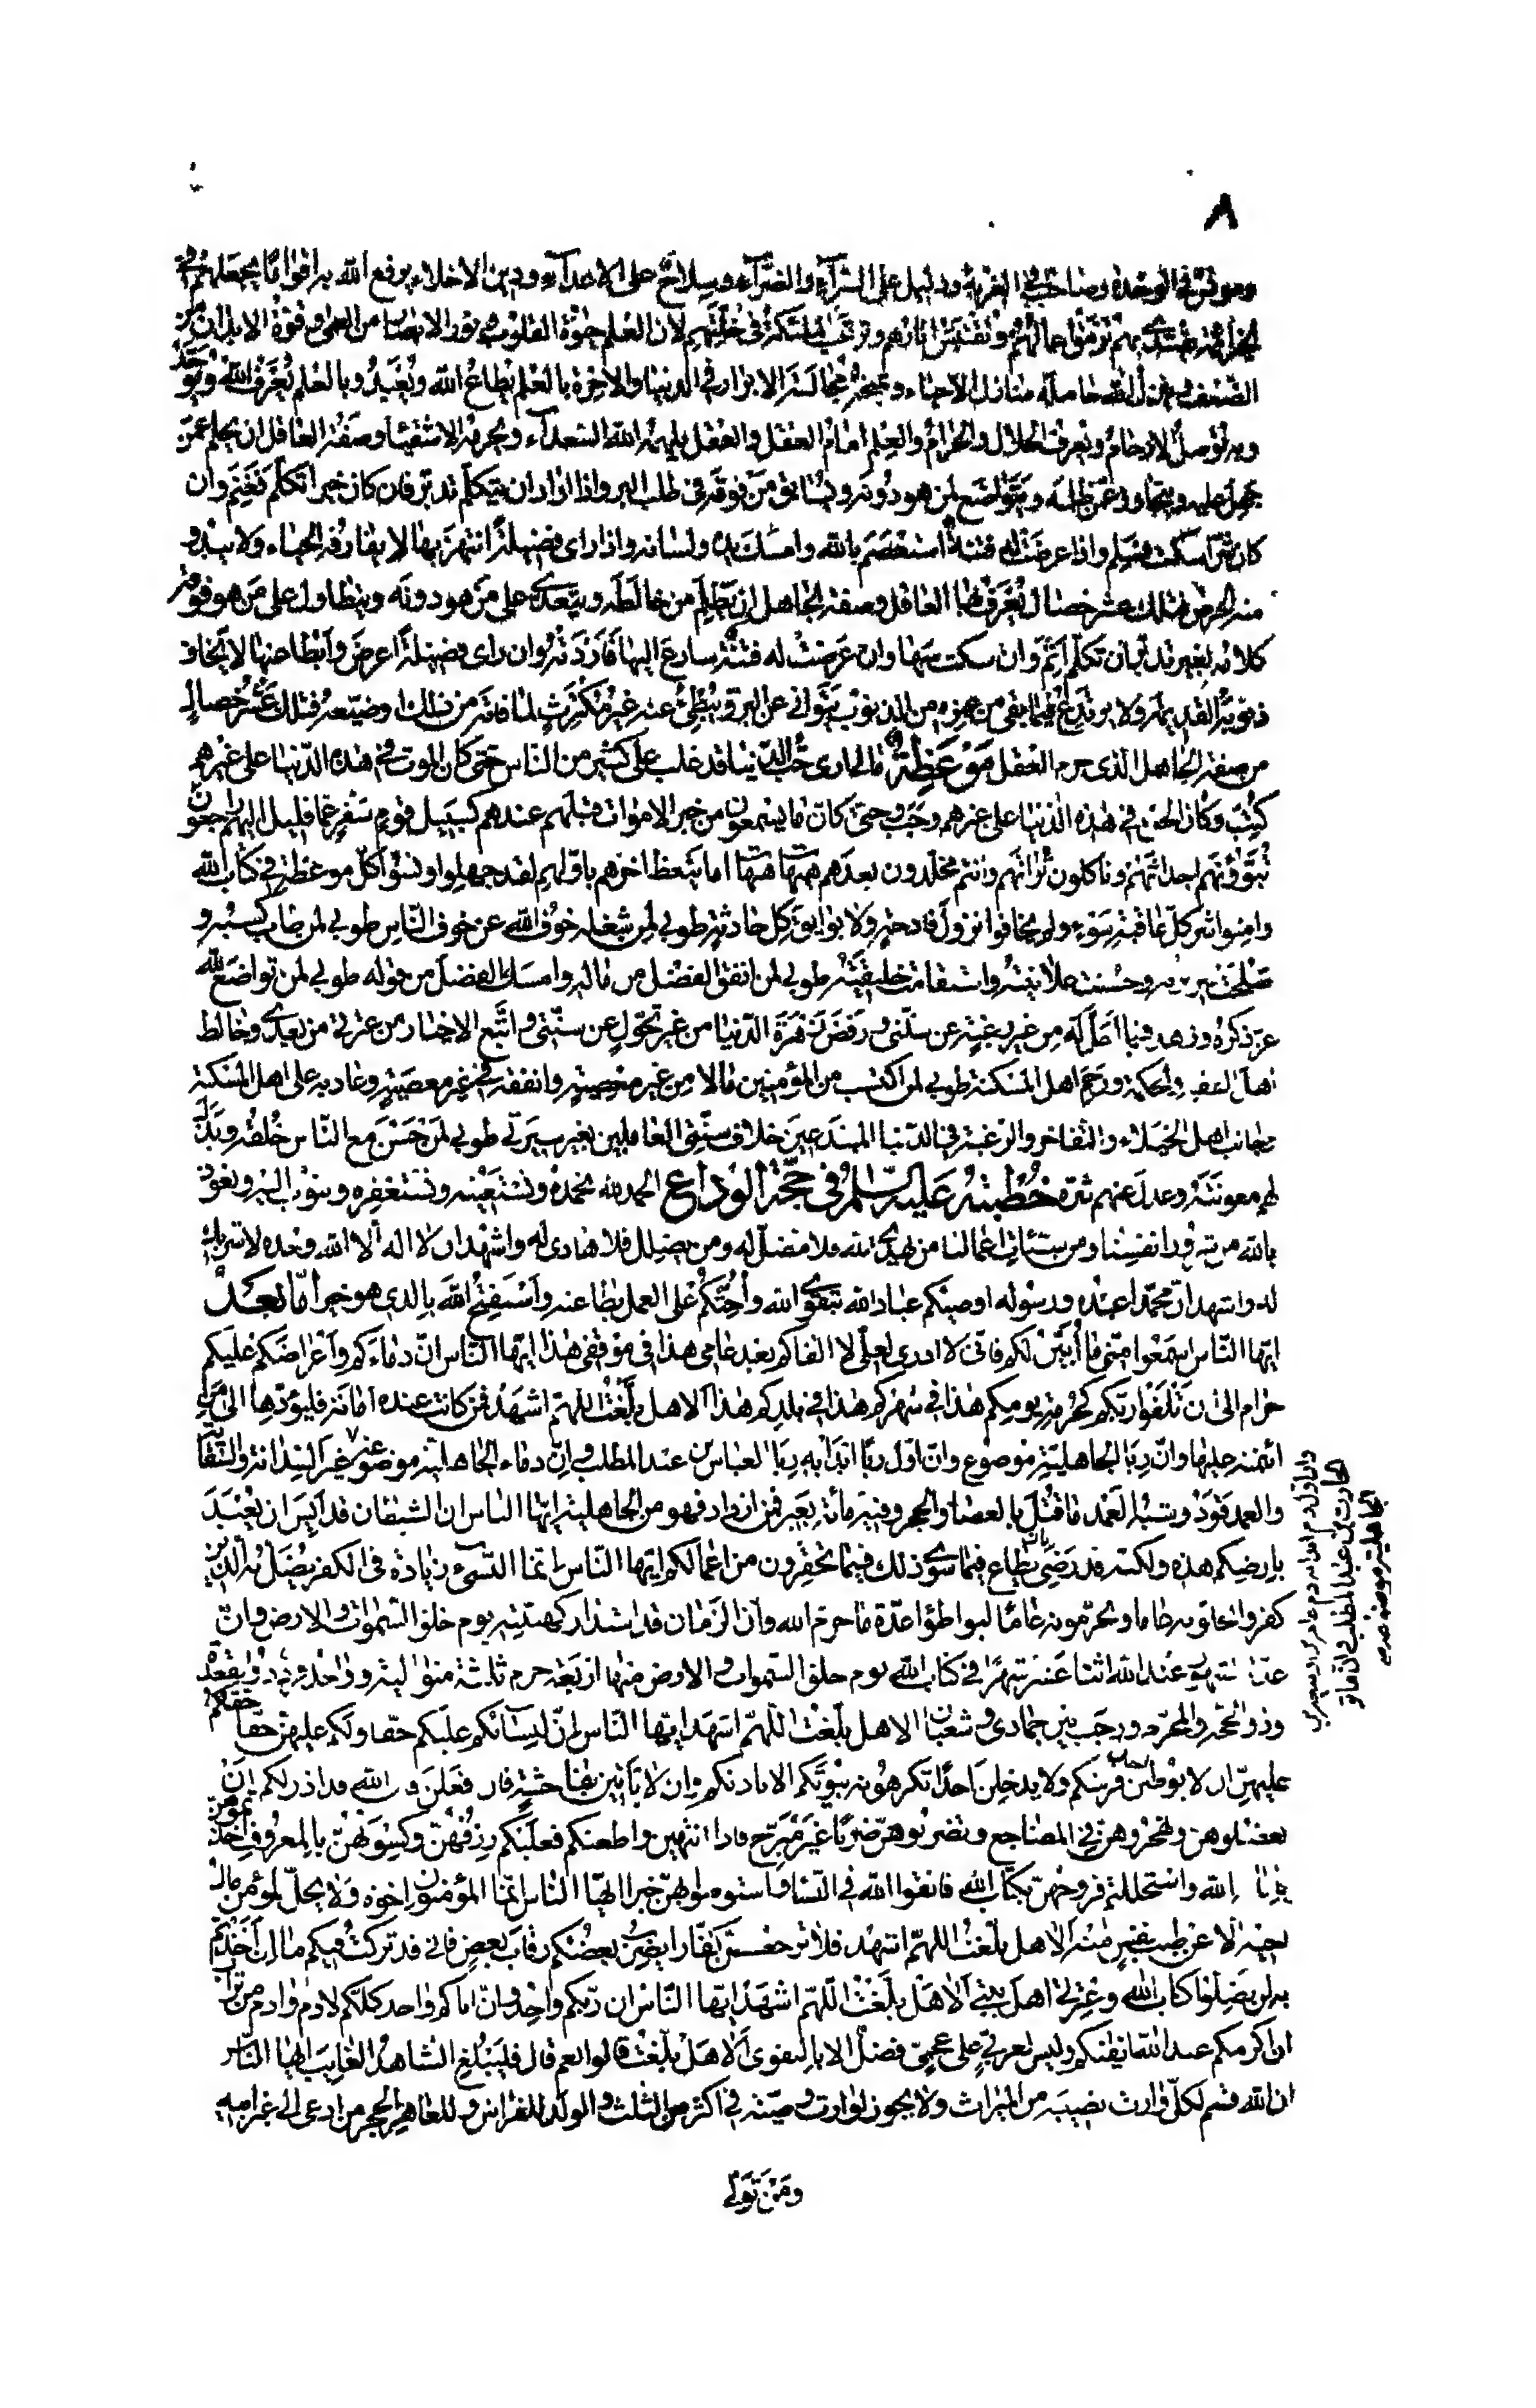 ٨
ومونس في الوحدة وصاحب في الغربة ودليل على السرآء والضرآء وسلاح على الاعدآء وزين الاخلاء يرفع الله به اقواما يجعلهم في
الخير ائمة يقتدى بهم ترمق اعمالهم وتقتبس اثارهم وترغب الملئكة في خلتهم لان العلم حيوة القلوب ونور الابصار من العمى وقوة الابدان من
الضعف ينزل الله حامله منازل الاحباء ويمنحه مجالسة الابرار في الدنيا والاخرة بالعلم يطاع الله ويعبد وبالعلم يعرف الله ويوحد
وبه توصل الارحام ويعرف الحلال والحرام والعلم امام العقل والعقل يلهمه الله السعدآء ويحرمه الاشقيآء وصفة العاقل ان يحلم عمن
جهل عليه ويتجاوز عمن ظلمه ويتواضع لمن هو دونه ويسابق من فوقه في طلب البر واذا اراد ان يتكلم تدبر فان كان خيرا تكلم فغنم وان
كان شرا سكت فسلم واذا عرضت له فتنة استعصم بالله وامسك يده ولسانه واذا راى فضيلة انتهز بها لا يفارقه الحياء ولا يبدو
منه الحرص فتلك عشر خصال يعرف بها العاقل وصفة الجاهل ان يظلم من خالطه ويتعدى على من هو دونه ويتطاول على من هو فوقه
كلامه بغير تدبر ان تكلم اثم وان سكت سها وان عرضت له فتنة سارع اليها فاردته وان راى فضيلة اعرض وابطا عنها لا يخاف
ذنوبه القديمة ولا يرتدع فيما بقى من عمره من الذنوب يتوانى عن البر ويبطئ عنه غير مكترث لما فاته من ذلك او ضيعه فتلك عشر خصال
من صفة الجاهل الذى حرم العقل موعظة مالى ارى حب الدنيا قد غلب على كثير من الناس حتى كان الموت في هذه الدنيا على غيرهم
كتب وكان الحق في هذه الدنيا على غيرهم وجب وحتى كان ما يسمعون من خبر الاموات قبلهم عندهم كسبيل قوم سفر عما قليل اليهم راجعون
تبوؤنهم اجداثهم وتاكلون تراثهم وانتم مخلدون بعدهم هيهات هيهات اما يتعظ اخرهم باولهم لقد جهلوا ونسوا كل موعظة في كتاب الله
وامنوا شر كل عاقبة سوء ولم يخافوا نزول فادحة ولا بوايق كل حادثة طوبى لمن شغله خوف الله عن خوف الناس طوبى لمن طاب كسبه و
صلحت سريرته وحسنت علانيته واستقامت خليقته طوبى لمن انفق الفضل من ماله وامسك الفضل من قوله طوبى لمن تواضع لله
عز ذكره وزهد فيما احل له من غير رغبة عن سنتى ورفض زهرة الدنيا من غير تحول عن سنتى واتبع الاخيار من عترتى من بعدى وخالط
اهل الفقه والحكمة ورحم اهل المسكنة طوبى لمن اكتسب من المؤمنين مالا من غير معصية وانفقه في غير معصية وعاد به على اهل المسكنة
وجانب اهل الخيلاء والتفاخر والرغبة في الدنيا المبتدعين خلاف سنتى العاملين بغير سيرتى طوبى لمن حسن مع الناس خلقه وبذل
لهم معونته وعدل عنهم شره خطبته عليه السلم في حجة الوداع الحمد لله نحمده ونستعينه ونستغفره ونتوب اليه ونعوذ
بالله من شرور انفسنا ومن سيئات اعمالنا من يهدى الله فلا مضل له ومن يضلل فلا هادى له واشهد ان لا اله الا الله وحده لا شريك
له واشهد ان محمدا عبده ورسوله اوصيكم عباد الله بتقوى الله واحثكم على العمل بطاعته واستفتح الله بالذى هو خير اما بعد
ايها الناس اسمعوا منى ما ابين لكم فانى لا ادرى لعلى لا القاكم بعد عامى هذا في موقفى هذا ايها الناس ان دماءكم واعراضكم عليكم
حرام الى ان تلقوا ربكم كحرمة يومكم هذا في شهركم هذا في بلدكم هذا الا هل بلغت اللهم اشهد فمن كانت عنده امانة فليؤدها الى من
ائتمنه عليها وان ربا الجاهلية موضوع وان اول ربا ابدا به ربا العباس بن عبد المطلب وان دماء الجاهلية موضوعة غير السدانة والسقاية
والعمد قود وشبه العمد ما قتل بالعصا والحجر وفيه مائة بعير فمن ازداد فهو من الجاهلية ايها الناس ان الشيطان قد ايس ان يعبد
بارضكم هذه ولكنه قد رضى بان يطاع فيما سوى ذلك فيما تحقرون من اعمالكم ايها الناس انما النسىء زيادة في الكفر يضل به الذين
كفروا يحلونه عاما ويحرمونه عاما ليواطؤا عدة ما حرم الله وان الزمان قد استدار كهيئته يوم خلق السموات والارض وان
عدة الشهور عند الله اثنا عشر شهرا في كتاب الله يوم خلق السموات والارض منها اربعة حرم ثلثة متوالية وواحد فرد ذو القعدة
وذو الحجة والمحرم ورجب بين جمادى وشعبان الا هل بلغت اللهم اشهد ايها الناس ان لنسائكم عليكم حقا ولكم عليهن حقا حقكم
عليهن ان لا يوطئن احدا فرشكم ولا يدخلن احدا تكرهونه بيوتكم الا باذنكم وان لا ياتين بفاحشة فان فعلن فان الله قد اذن لكم ان
تعضلوهن وتهجروهن في المضاجع وتضربوهن ضربا غير مبرح فاذا انتهين واطعنكم فعليكم رزقهن وكسوتهن بالمعروف اخذتموهن
بامانة الله واستحللتم فروجهن بكتاب الله فاتقوا الله في النساء واستوصوا بهن خيرا ايها الناس انما المؤمنون اخوة ولا يحل لمؤمن مال
اخيه الا عن طيب نفس منه الا هل بلغت اللهم اشهد فلا ترجعن كفارا يضرب بعضكم رقاب بعض فانى قد تركت فيكم ما ان اخذتم
به لن تضلوا كتاب الله وعترتى اهل بيتى الا هل بلغت اللهم اشهد ايها الناس ان ربكم واحد وان اباكم واحد كلكم لادم وادم من تراب
ان اكرمكم عند الله اتقيكم وليس لعربى على عجمى فضل الا بالتقوى الا هل بلغت قالوا نعم قال فليبلغ الشاهد الغايب ايها الناس
ان الله قسم لكل وارث نصيبه من الميراث ولا يجوز لوارث وصية في اكثر من الثلث والولد للفراش وللعاهر الحجر من ادعى الى غير ابيه
وان اول دم ابدا به دم عامر بن ربيعة بن
الحارث بن عبد المطلب وان ماثر
الجاهلية موضوعة
ومن تولى